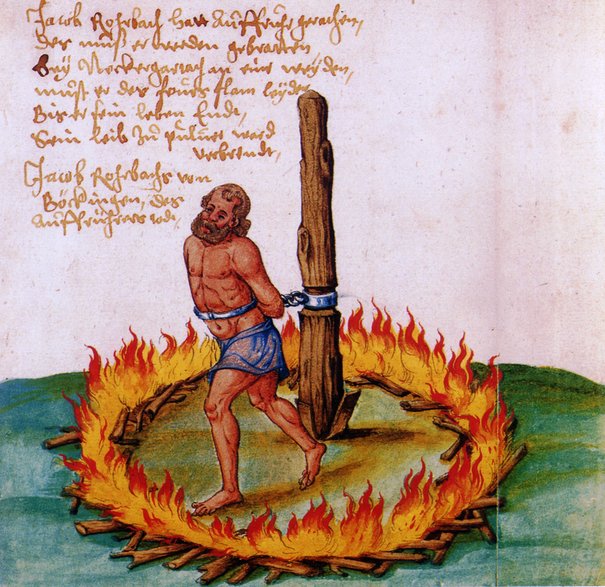 Jacob Rohrbach hatt Auffruhr gerachen,
Der muß er werden gebratten
Bey Neckergartach an eine weyden,
mußt er des feures flam leyden
Bis er sein leben Endt,
Sein leib Zu puluer ward
verbrendt,
Jacob Rohrbachs von
Böckingen, des
Auffrührers todt,